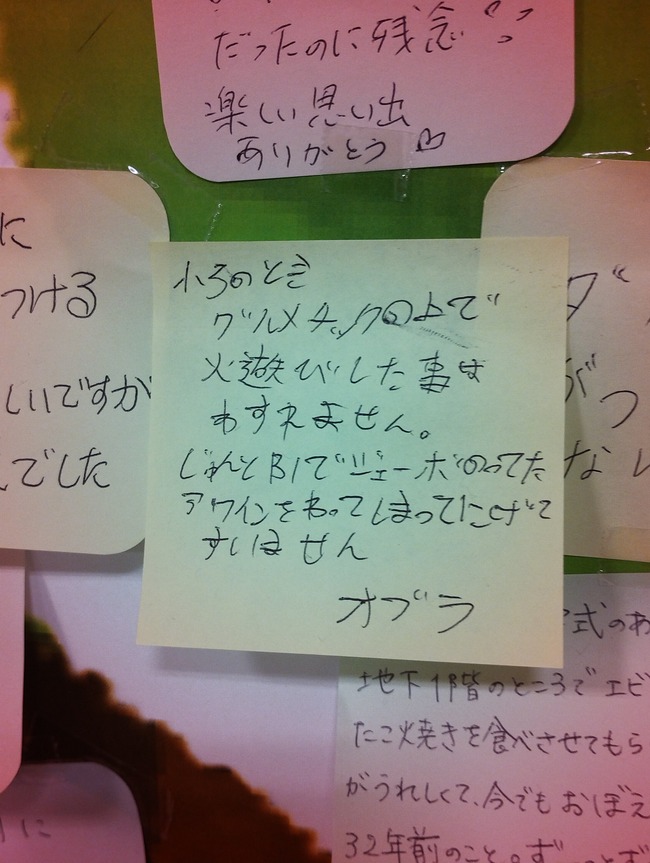 だったのに残念
楽しい思い出
ありがとう
に
つける
しいですが
でした
小3のとき
グルメチックの上で
火遊びした事は
わすれません。
B1で
ワインをわってしまって
すいません
オブラ
ダ
がつ
ない
式のあ
地下1階のところでエビ
たこ焼きを食べさせてもら
がうれしくて、今でもおぼえ
32年前のこと。
に